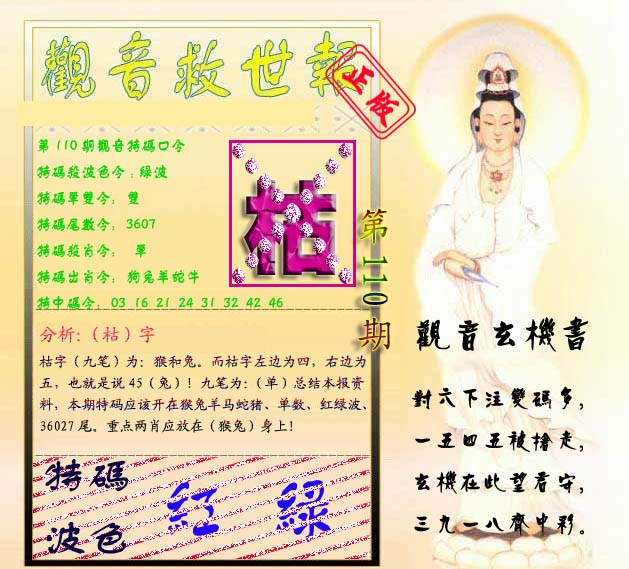 觀音救世報
正版
第110期觀音特碼口令
特碼殺波色令:綠波
特碼單雙令: 雙
特碼尾數令: 3607
特碼殺肖令: 單
特碼出肖令: 狗兔羊蛇牛
特中碼令: 03 16 21 24 31 32 42 46
枯
第110期
分析:（枯）字
枯字（九笔）为：猴和兔。而枯字左边为四，右边为
五，也就是说 45（兔）！九笔为：（单）总结本报资
料，本期特码应该开在猴兔羊马蛇猪、单数、红绿波、
36027 尾。重点两肖应放在（猴兔）身上！
特碼
波色
紅 綠
觀音玄機書
對六下注雙碼多，
一五四五被搶走，
玄機在此望看守，
三九一八齊中彩。